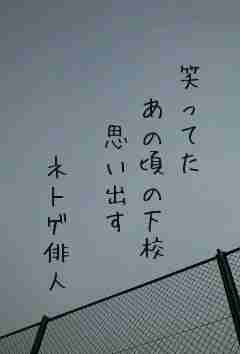 笑ってた
あの頃の下校
思い出す
ネトゲ俳人